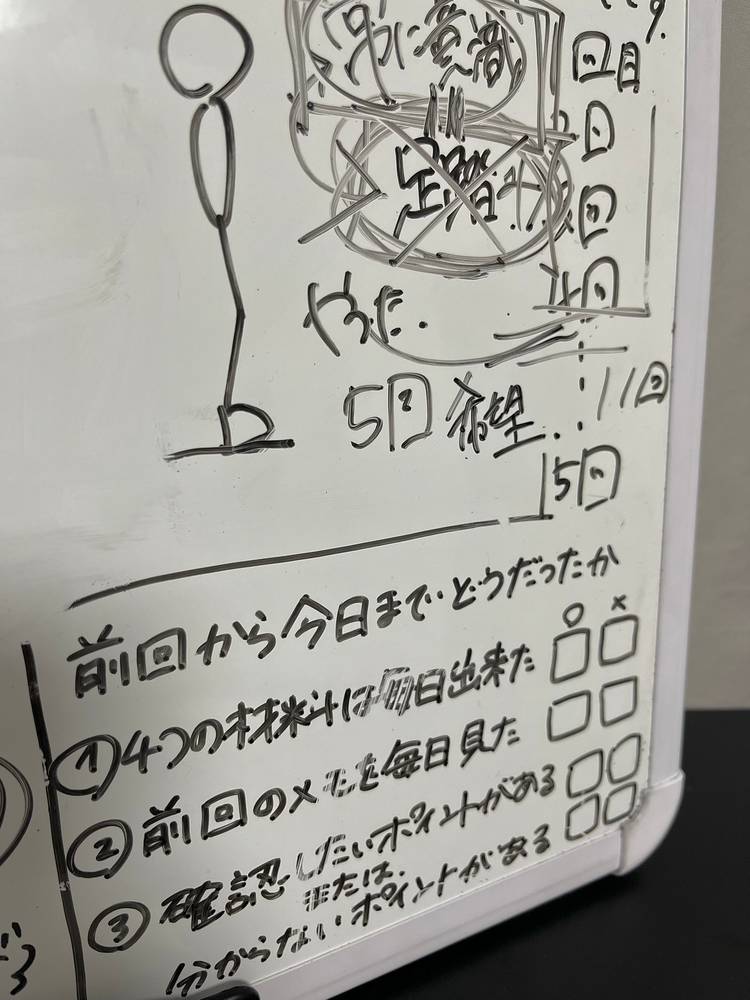 別に意識
回目
足踏
やった.
5回希望
11回
5回
前回から今日までどうだったか
○ ×
①4つの材料は毎日出来た
②前回のメモを毎日見た
③確認したいポイントがある
または.
分からないポイントがある